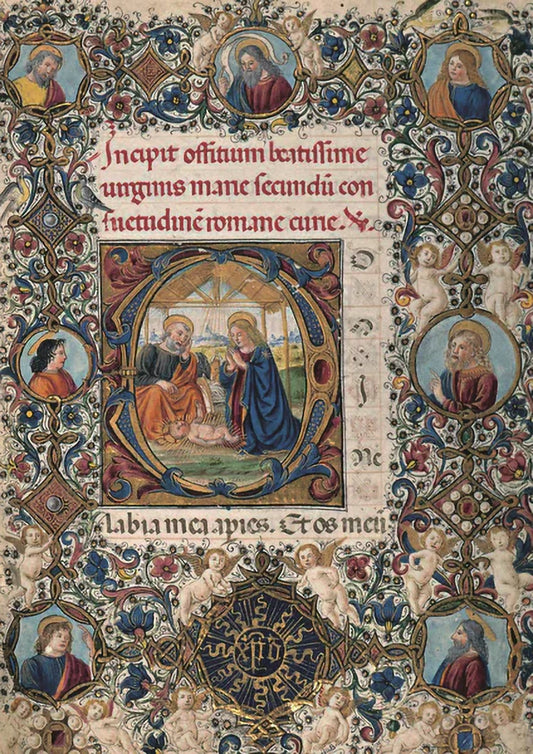 Incipit offitium beatissime
uirginis marie secundū con
suetudinē romane curie.
D
O
M
I
NE
labia mea apies. Et os meū